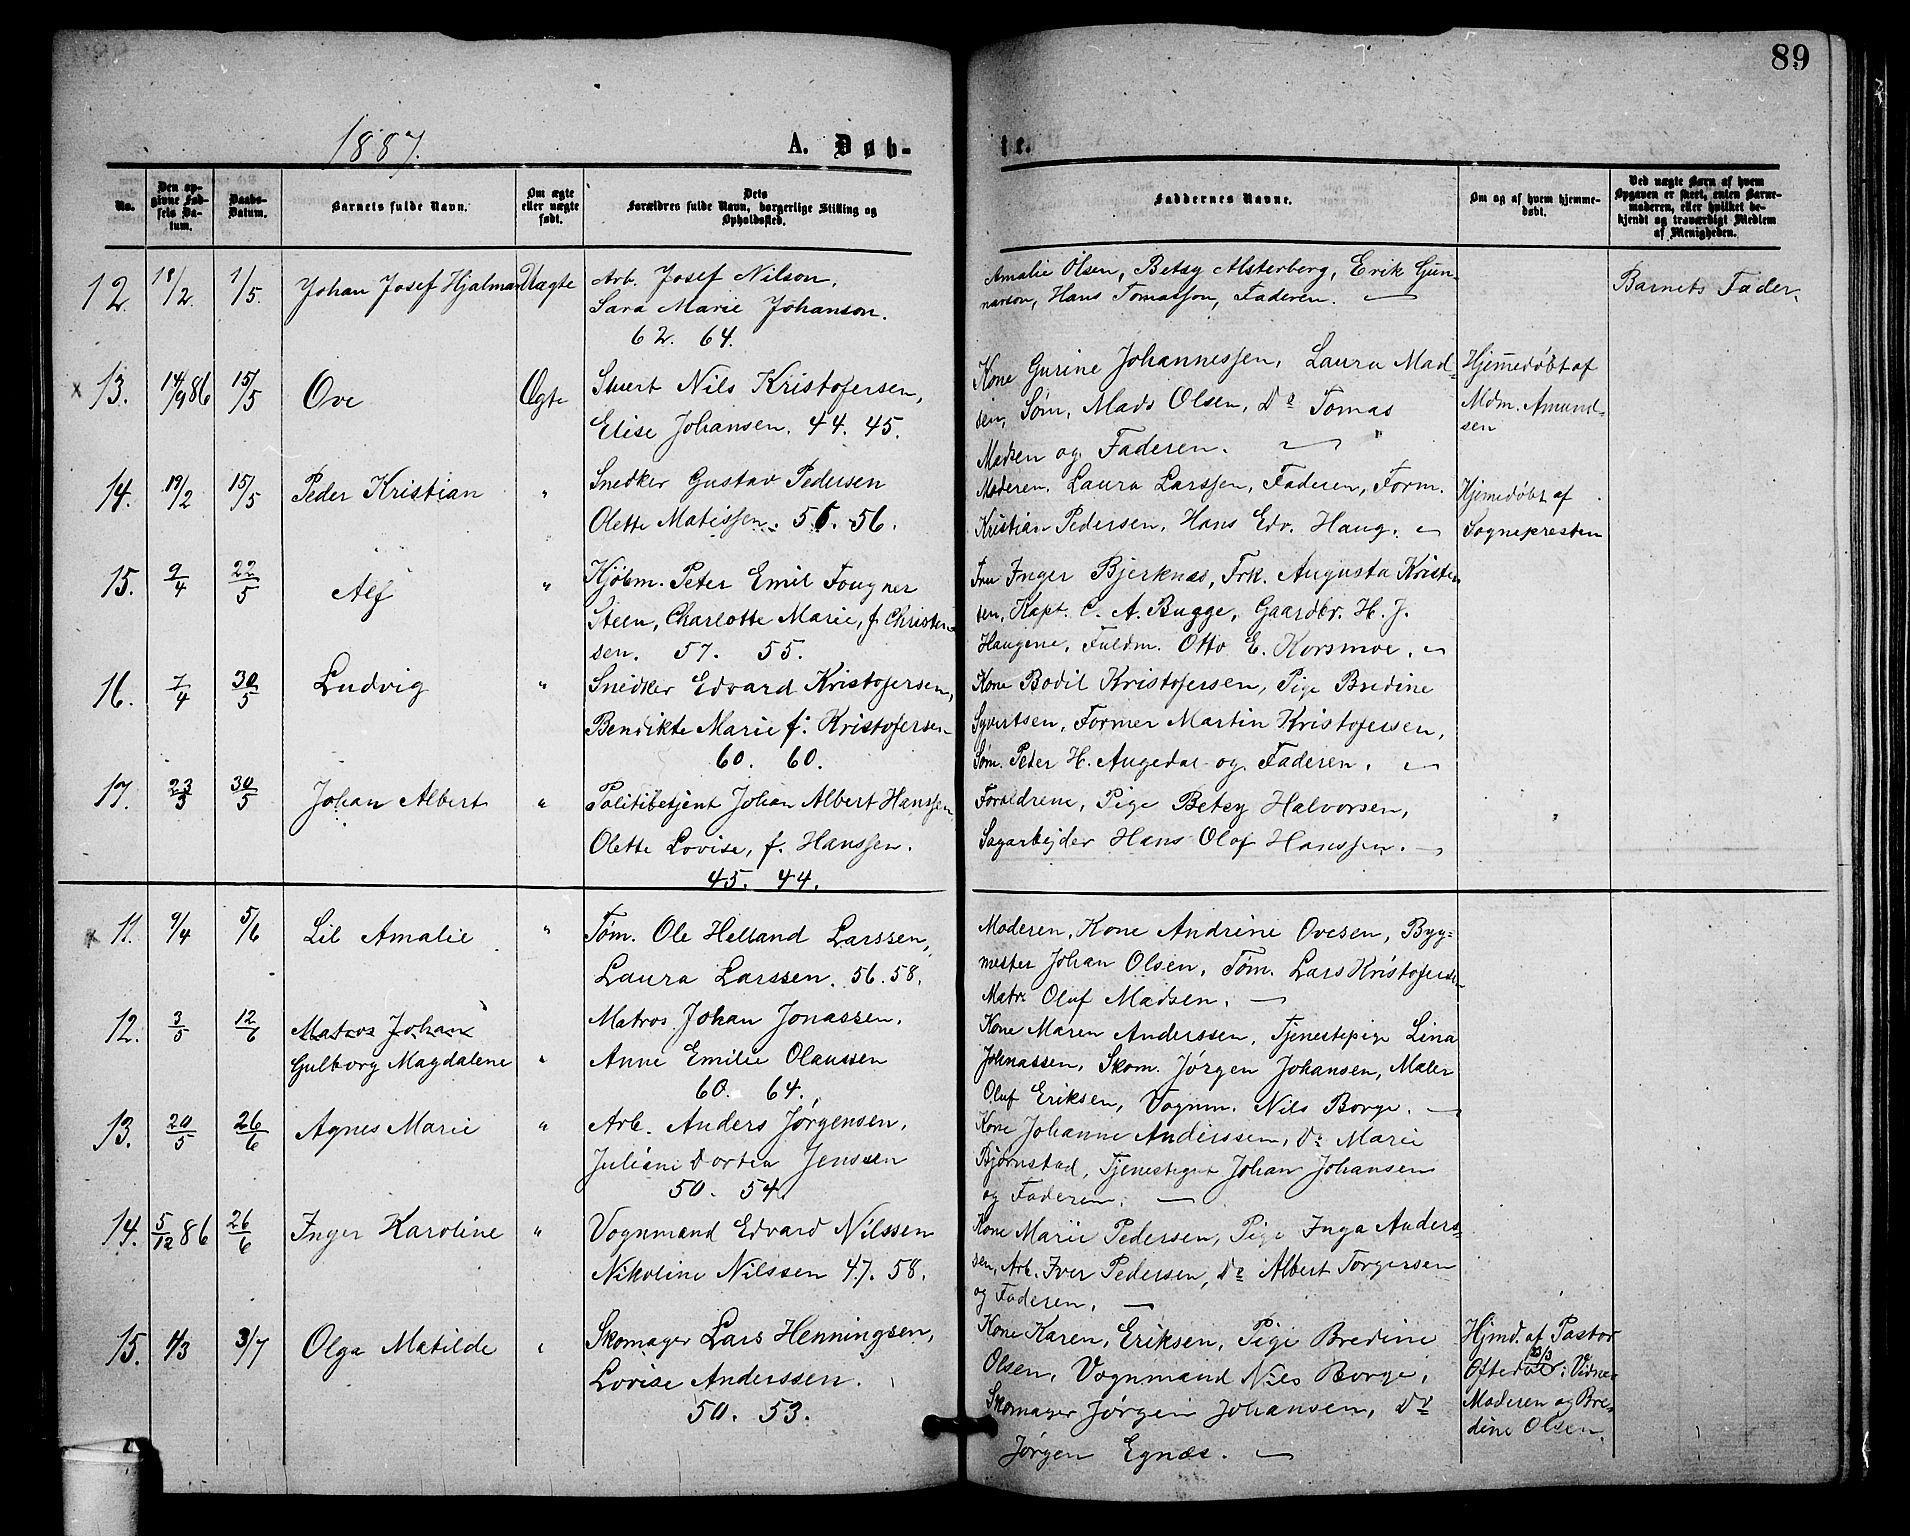 89
1887.
A. Døb-
te.
No.
Den op-
givne Fød-
sels Da-
tum.
Daabs-
Datum.
Barnets fulde Navn.
Om ægte
eller uægte
født.
Dets
Forældres fulde Navn, borgerlige Stilling og
Opholdssted.
Faddernes Navne.
Om og af hvem hjemme-
døbt.
Ved uægte Barn af hvem
Opgaven er skeet, enten Barne-
moderen, eller hvilket be-
kjendt og troværdigt Medlem
af Menigheden.
12. 18/2. 1/5. Johan Josef Hjalmar Uægte Arb. Josef Nilson,
Sara Marie Johanson.
62. 64.
Amalie Olsen, Betsy Alsterberg, Erik Gun-
narson, Hans Tomassen, Faderen.
Barnets Fader.
x 13. 14/9 86 15/5 Ove Ægte Stuert Nils Kristofersen,
Elise Johansen. 44. 45.
Kone Gurine Johannessen, Laura Mad-
sen, Søm. Mads Olsen, Do Tomas
Madsen og Faderen.
Hjemmedøbt af
Mdm. Amund-
sen
14. 19/2 15/5 Peder Kristian " Snedker Gustav Pedersen
Olette Matissen. 55. 56.
Moderen, Laura Larssen, Faderen, Form.
Kristian Pedersen, Hans Edv. Haug.
Hjemedøbt af
Sognepresten
15. 9/4 22/5 Alf " Kjøbm. Peter Emil Fougner
Steen, Charlotte Marie, f. Christen-
sen. 57. 55.
Fru Inger Bjerknæs, Frk. Augusta Kristen-
sen, Kapt. C. A. Bugge, Gaardbr. H. J.
Haugene, Fuldm. Otto E. Korsmoe.
16. 7/4 30/5 Ludvig " Snedker Edvard Kristofersen,
Bendikte Marie f. Kristofersen
60. 60.
Kone Bodil Kristofersen, Pige Bredine
Syvertsen, Former Martin Kristofersen,
Søm. Peter H. Augedal og Faderen.
17. 23/3 30/5 Johan Albert " Politibetjent Johan Albert Hanssen
Olette Lovise, f. Hanssen.
45. 44.
Forældrene, Pige Betsy Halvorsen,
Sagarbejder Hans Olaf Hanssen.
x 11. 9/4 5/6 Lil Amalie " Tøm. Ole Helland Larssen,
Laura Larssen. 56. 58.
Moderen, Kone Andrine Ovesen, Byg-
mester Johan Olsen, Tøm. Lars Kristofersen
Matr. Oluf Madsen.
12. 3/5 12/6 Matros Johan
Gulborg Magdalene " Matros Johan Jonassen,
Anne Emilie Olaussen
60. 64.
Kone Maren Anderssen, Tjenestepige Lina
Johnassen, Skom. Jørgen Johansen, Maler
Oluf Eriksen, Vognm. Nils Borge.
13. 20/5 26/6 Agnes Marie " Arb. Anders Jørgensen,
Juliane Dortea Jenssen
50. 54.
Kone Johanne Anderssen, Do Marie
Bjørnstad, Tjenestegut Johan Johansen
og Faderen.
14. 5/12 86 26/6 Inger Karoline " Vognmand Edvard Nilssen
Nikoline Nilssen 47. 58.
Kone Marie Pedersen, Pige Inga Anders-
sen, Arb. Iver Pedersen, Do Albert Torgersen
og Faderen.
15. 4/3 3/7 Olga Matilde " Skomager Lars Henningsen,
Lovise Anderssen.
50. 53.
Kone Karen Eriksen, Pige Bredine
Olsen, Vognmand Nils Borge,
Skomager Jørgen Johansen, Do
Jørgen Egnæs.
Hjmd. af Pastor
Oftedal: Vidner
Moderen og Bre-
dine Olsen.